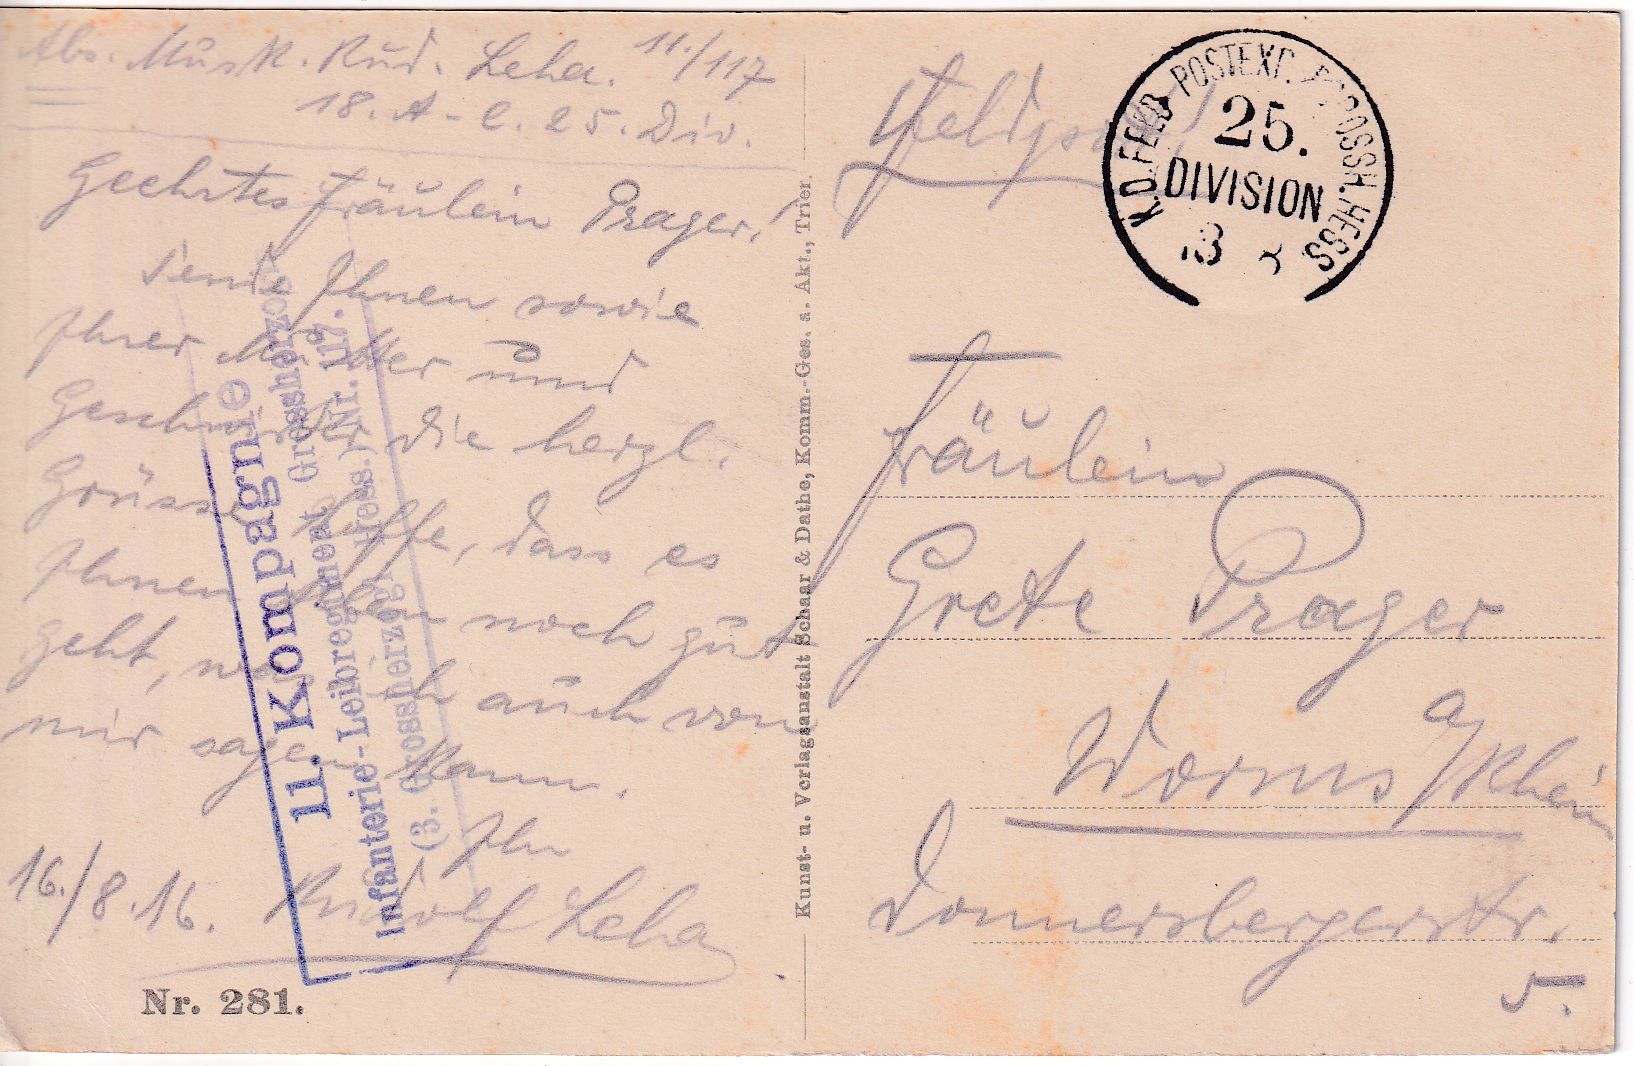 Abs. Musk. Rud. Leha. 11./117
18. A-C. 25. Div.
Geehrtes Fräulein Prager!
Sende Ihnen sowie
Ihrer Mutter und
Geschwister die herzl.
Grüsse. Hoffe, dass es
Ihnen allen noch gut
geht, was ich auch von
mir sagen kann.
Ihr
16./8.16. Rudolf Leha
Nr. 281.
11. Kompagnie
Infanterie-Leibregiment Grossherzogin
(3. Grossherzogl. Hess.) Nr. 117.
Kunst- u. Verlagsanstalt Schaar & Dathe, Komm.-Ges. a. Akt., Trier.
Feldpost!
K.D. FELD-POSTEXP. D. GROSSH. HESS
25.
DIVISION
Fräulein
Grete Prager
Worms a/Rhein
Donnersbergerstr.
5.